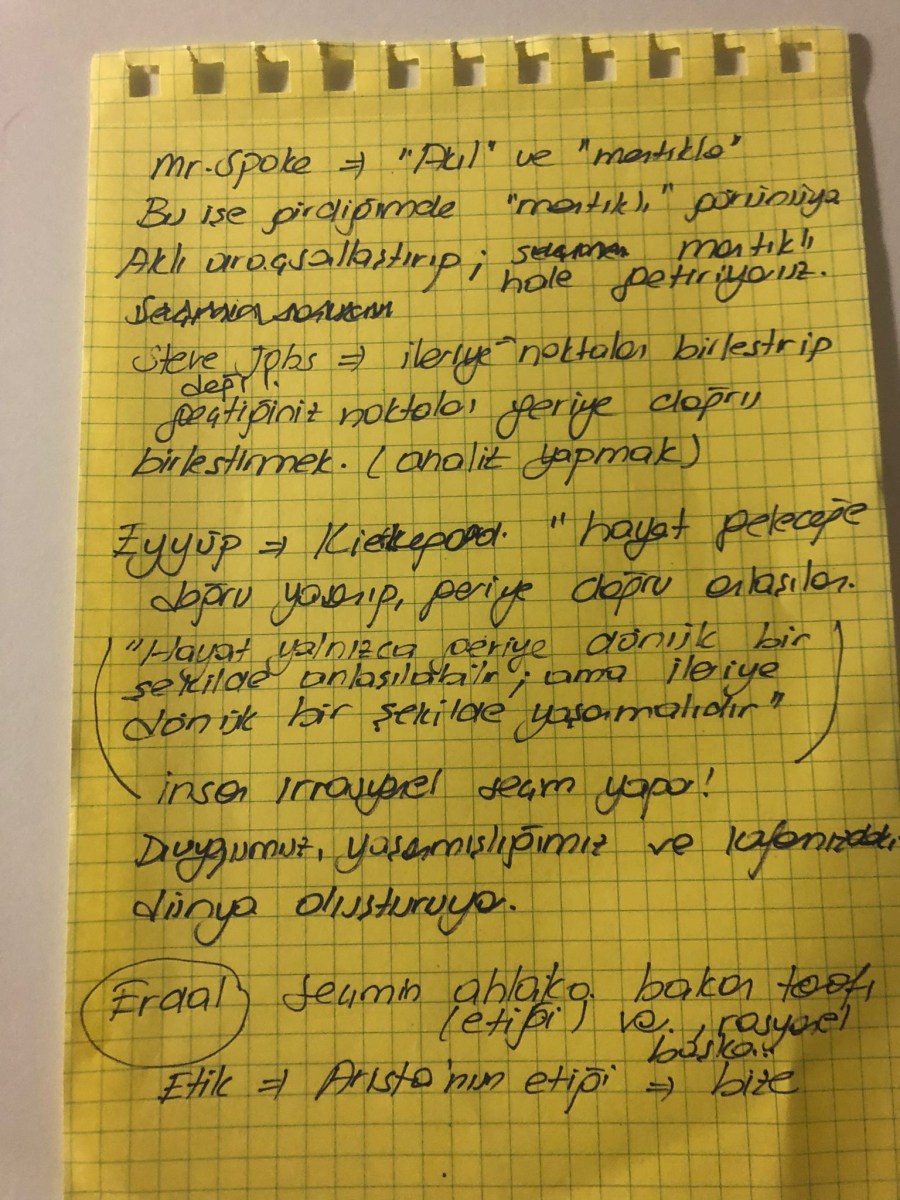 Mr. Spoke ⇒ "Akıl" ve "mantıkla"
Bu işe girdiğimde "mantıklı" görünüyor
Aklı araçsallaştırıp; mantıklı
hale getiriyoruz.
Steve Jobs ⇒ ileriye noktaları birleştirip
değil.
geçtiğiniz noktaları geriye doğru
birleştirmek. (analiz yapmak)
Eyyüp ⇒ "hayat geleceğe
doğru yaşanıp, geriye doğru anlaşılan.
"Hayat yalnızca geriye dönük bir
şekilde anlaşılabilir; ama ileriye
dönük bir şekilde yaşanmalıdır"
insan irrasyonel seçim yapar!
Duygumuz, yaşanmışlığımız ve kafamızdaki
dünya oluşturuyor.
Erdal seçimin ahlaka bakan tarafı
(etiği) ve rasyonel
Etik ⇒ Aristo'nun etiği ⇒ bize